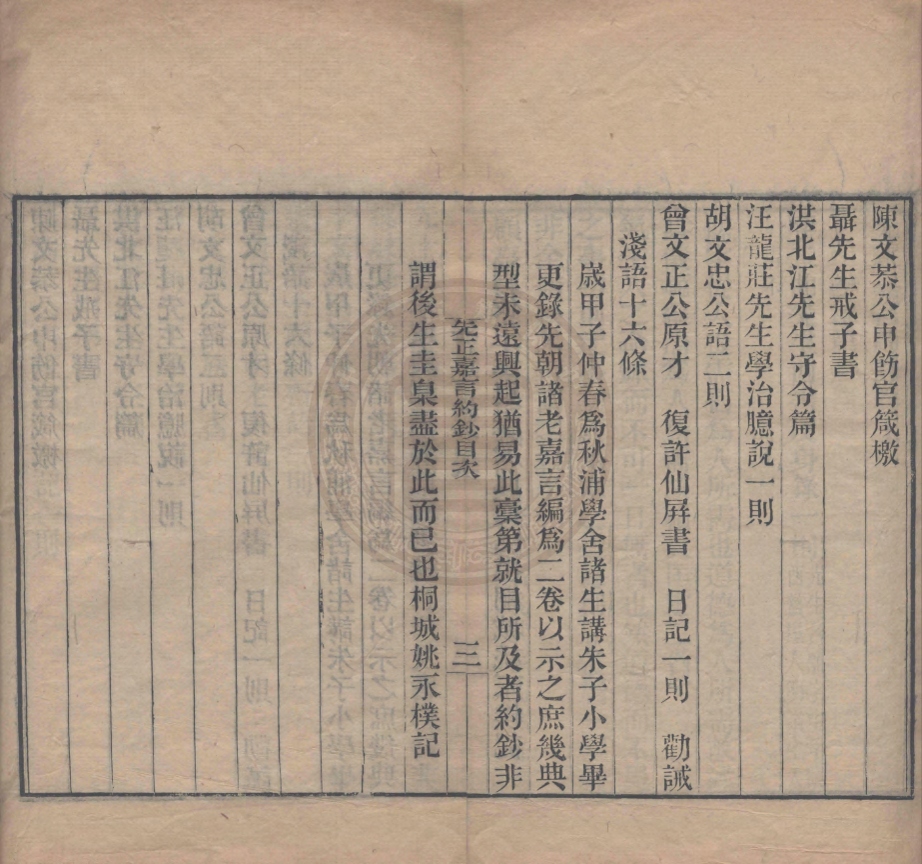 陳文恭公申飭官箴檄
聶先生戒子書
洪北江先生守令篇
汪龍莊先生學治臆說一則
胡文忠公語二則
曾文正公原才 復許仙屏書 日記一則 勸誡
淺語十六條
歲甲子仲春爲秋浦學舍諸生講朱子小學畢
更錄先朝諸老嘉言編爲二卷以示之庶幾典
型未遠興起猶易此槀第就目所及者約鈔非
先正嘉言約鈔目次 三
謂後生圭臬盡於此而已也桐城姚永樸記